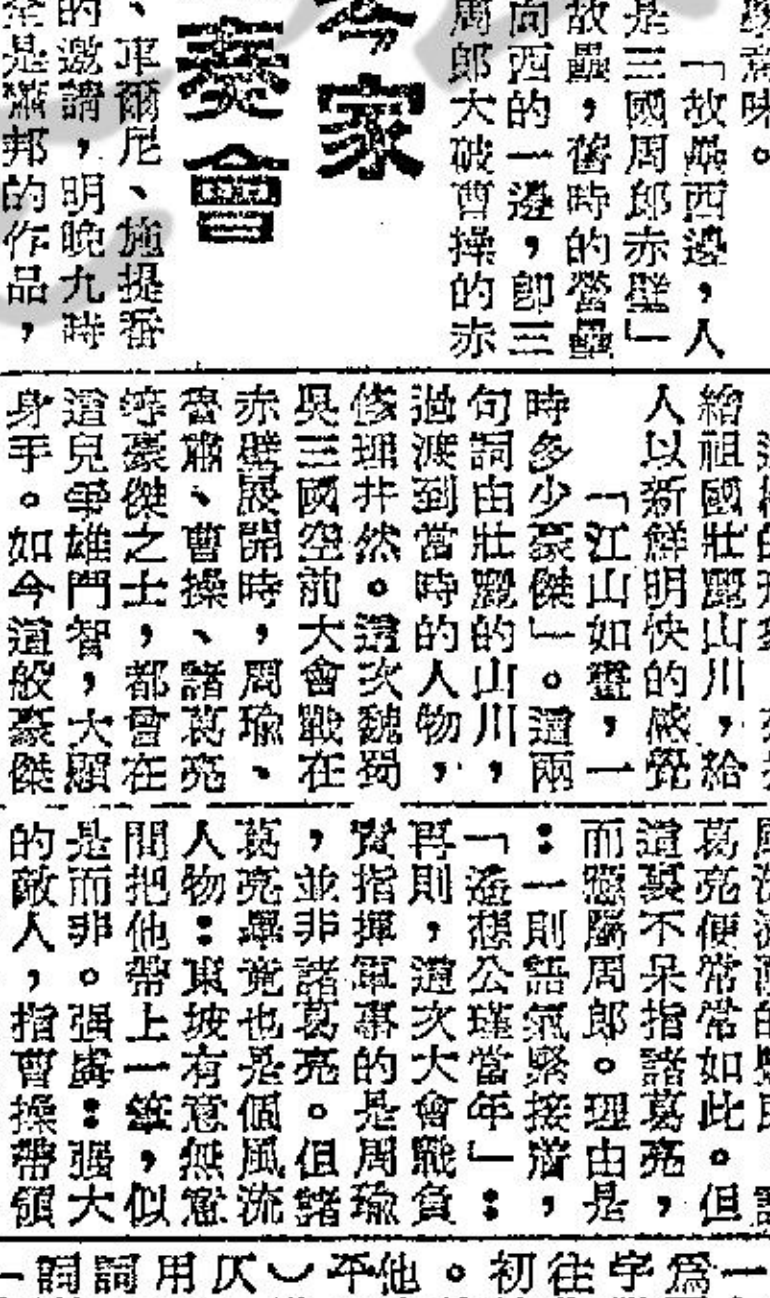 意味。
「故壘西邊，人
是三國周郎赤壁」
故壘，舊時的營壘
向西的一邊，卽三
周郎大破曹操的赤
琴家
奏會
、車爾尼、施提番
的邀請，明晚九時
全是蕭邦的作品，
繪祖國壯麗山川，給
人以新鮮明快的感覺
「江山如畫，一
時多少豪傑」。這兩
句詞由壯麗的山川，
過渡到當時的人物，
條理井然。這次魏蜀
吳三國空前大會戰在
赤壁展開時，周瑜、
魯肅、曹操、諸葛亮
等豪傑之士，都曾在
這兒爭雄鬥智，大顯
身手。如今這般豪傑
葛亮便常常如此。但
這裏不呆指諸葛亮，
而應屬周郎。理由是
：一則語氣緊接着，
「遙想公瑾當年」：
再則，這次大會戰負
責指揮軍事的是周瑜
，並非諸葛亮。但諸
葛亮畢竟也是個風流
人物：東坡有意無意
間把他帶上一筆，似
是而非。强虜：强大
的敵人，指曹操帶領
一
爲
字
往
初
。
他
平
︶
仄
用
詞
詞
一